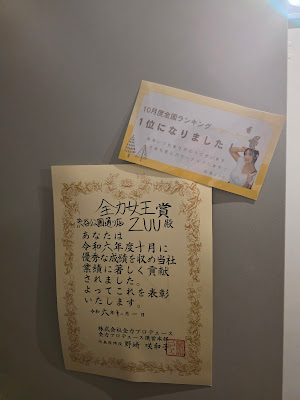 10月度全国ランキング
1位になりました
全力女王賞
渋谷公園通り店 ZUU殿
あなたは
令和六年度十月に
優秀な成績を収め当社
業績に著しく貢献
されました。
よってこれを表彰
いたします。
株式会社全力プロデュース
全力プロデュース運営本部
野崎